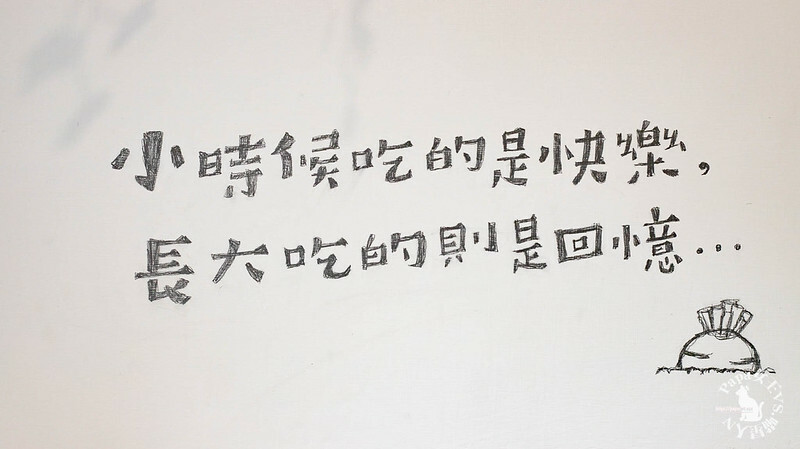 小時候吃的是快樂,
長大吃的則是回憶...